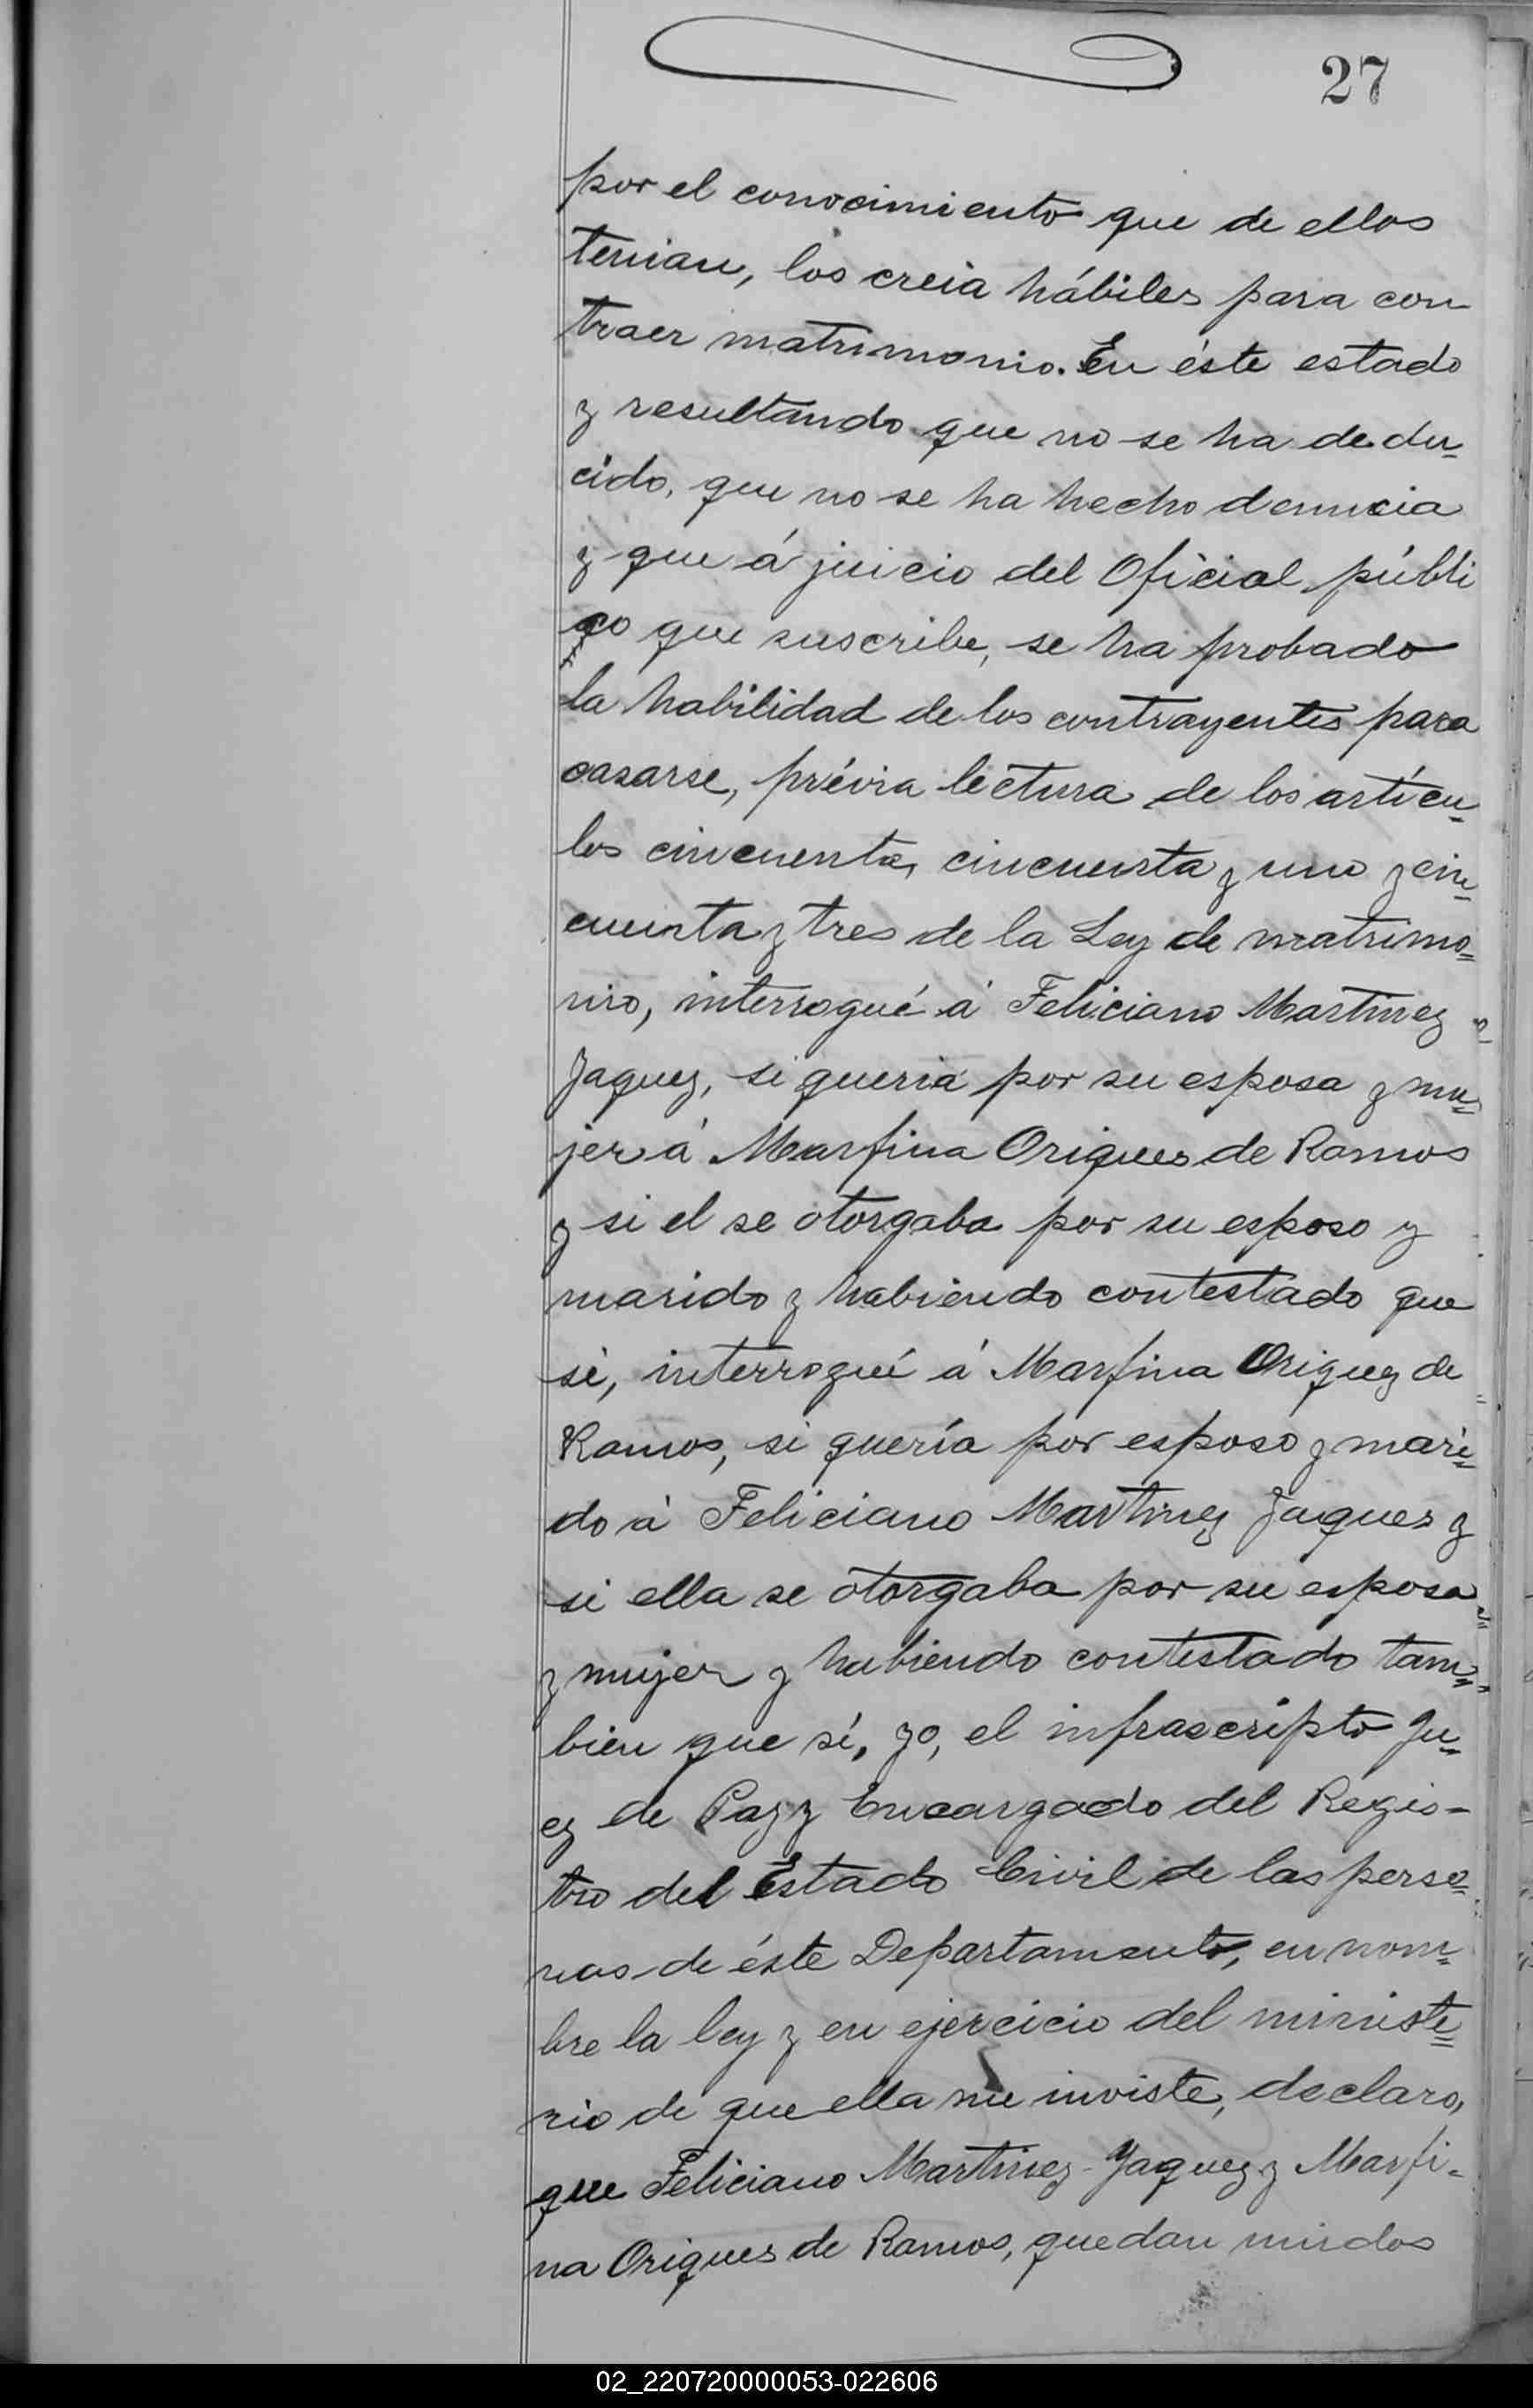 27
por el conocimiento que de ellos
tenian, los creia hábiles para con
traer matrimonio. En éste estado
y resultando que no se ha dedu=
cido, que no se ha hecho denuncia
y que á juicio del Oficial públi
co que suscribe, se ha probado
la habilidad de los contrayentes para
casarse, prévia lectura de los artícu=
los cincuenta, cincuenta y uno y cin=
cuenta y tres de la Ley de matrimo=
nio, interrogué á Feliciano Martinez
Jaquez, si queria por su esposa y mu=
jer á Marfina Origues de Ramos
y si el se otorgaba por su esposo y
marido y habiendo contestado que
si, interrogué á Marfina Origuez de
Ramos, si quería por esposo y mari=
do á Feliciano Martinez Jaques y
si ella se otorgaba por su esposa
y mujer y habiendo contestado tam=
bien que sí, yo, el infrascripto Ju=
ez de Paz y Encargado del Regis-
tro del Estado Civil de las perso=
nas de éste Departamento, en nom=
bre la ley y en ejercicio del ministe=
rio de que ella me inviste, declaro,
que Feliciano Martinez Yaquez y Marfi-
na Origues de Ramos, quedan unidos
02_220720000053-022606